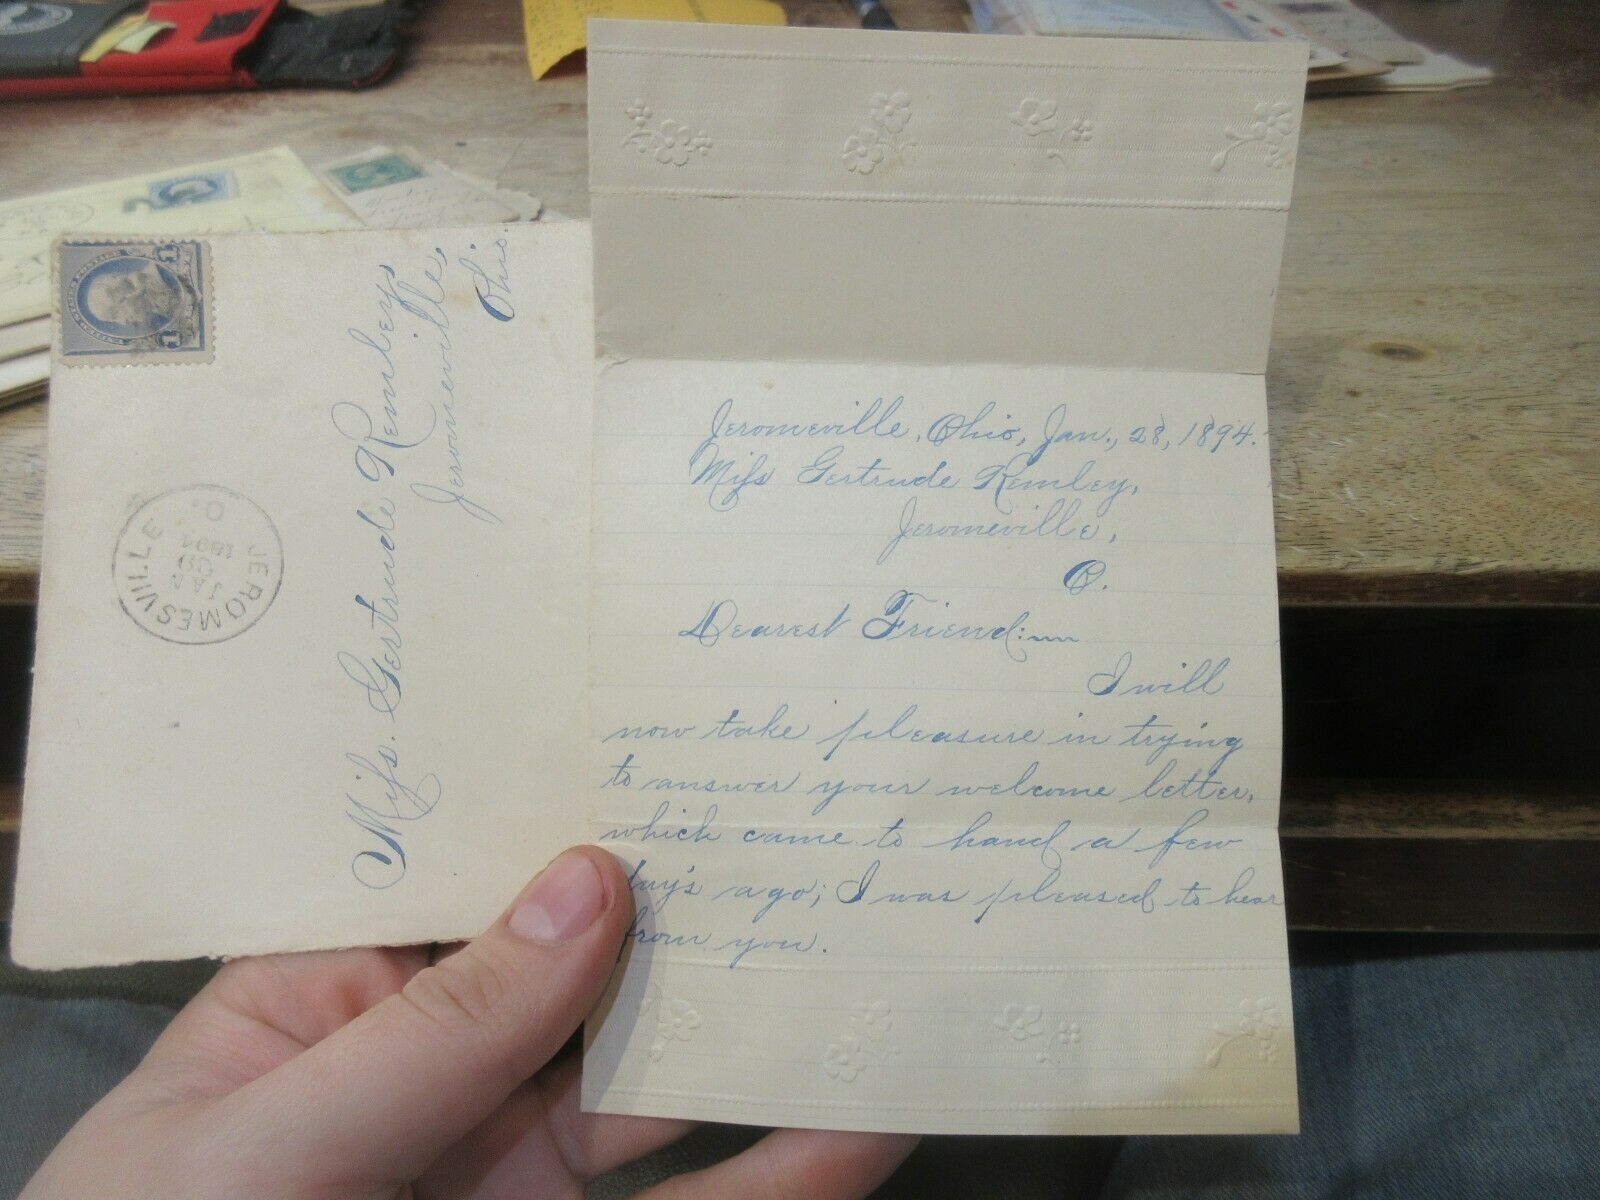 Jeromeville, Ohio, Jan., 28, 1894.
Miss Gertrude Remley,
Jeromeville,
O.
Dearest Friend:
I will
now take pleasure in trying
to answer your welcome letter,
which came to hand a few
day's ago; I was pleased to hear
from you.
Miss. Gertrude Remley
Jeromeville,
Ohio.
JEROMESVILLE
JAN
29
1894
O.
1 1